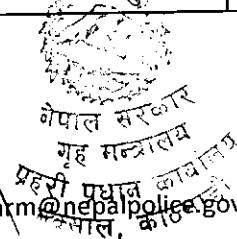 नेपाल सरकार
गृह मन्त्रालय
प्रहरी प्रधान कार्यालय
rm@nepalpolice.gov